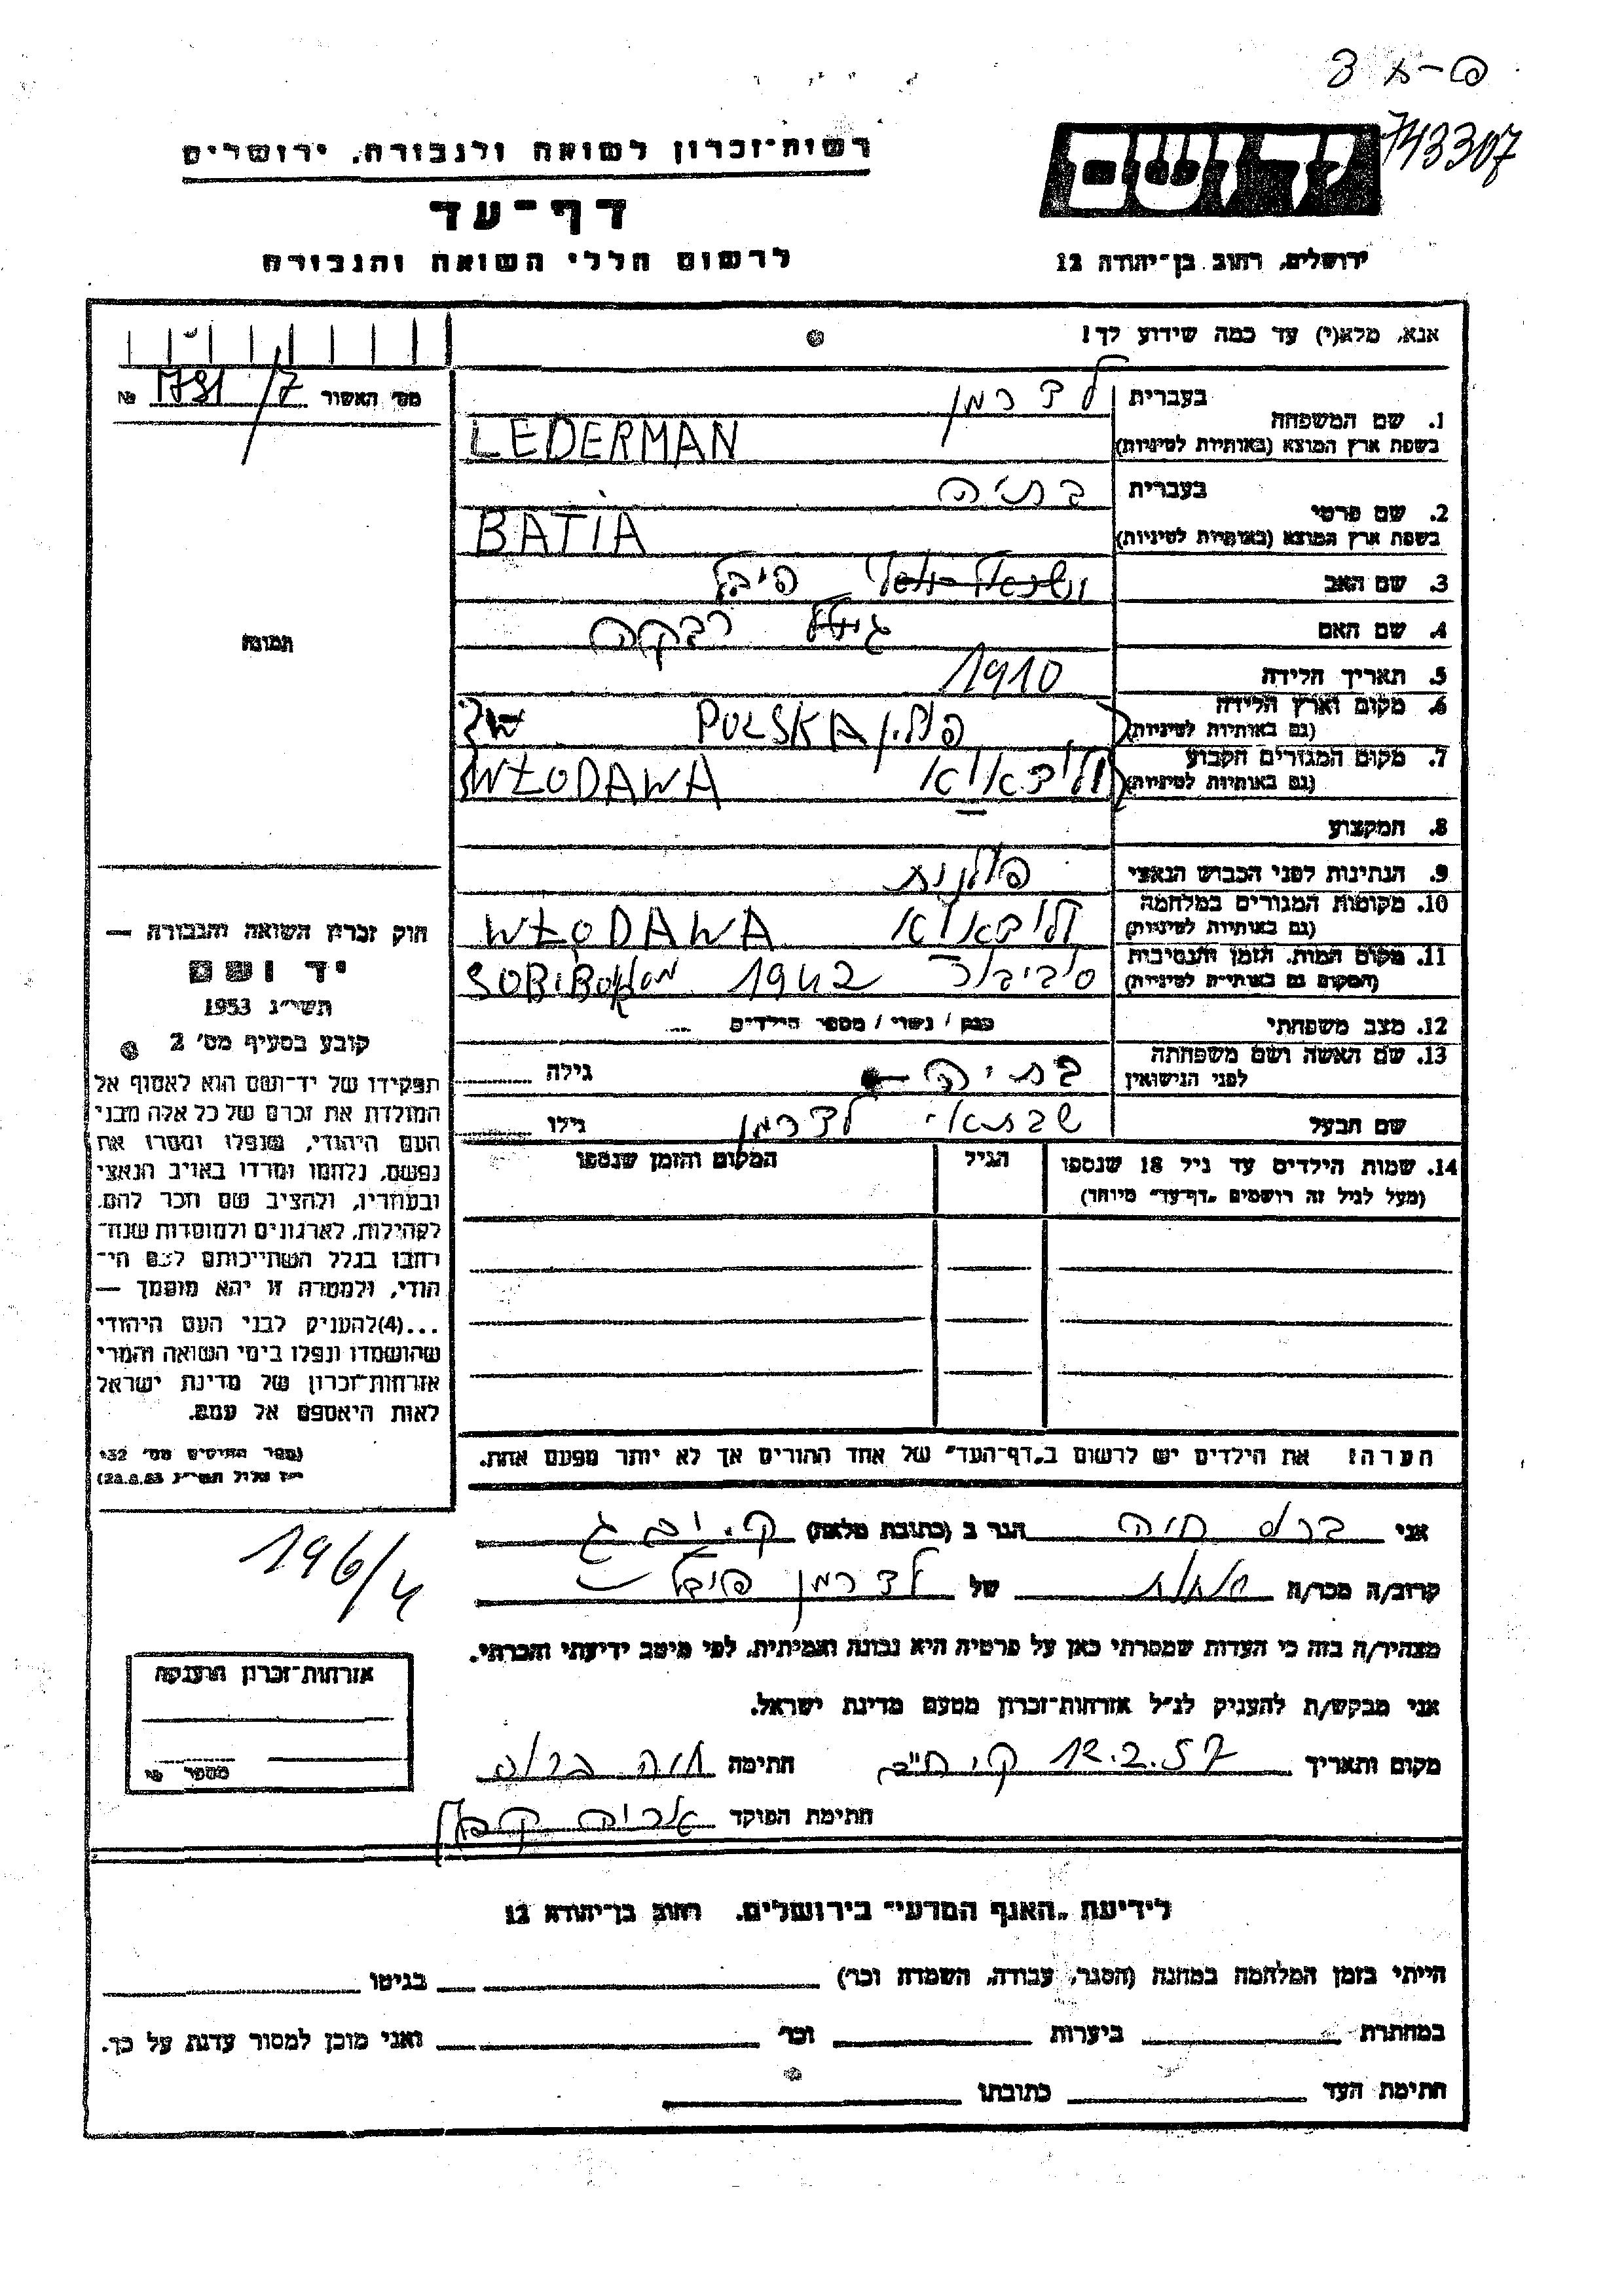 743307
רשות-זכרון לשואה ולגבורה, ירושלים
יד ושם
דף-עד
לרשום חללי השואה והגבורה
ירושלים, רחוב בן-יהודה 12
אנא, מלא(י) עד כמה שידוע לך!
מס' האשור № 1791/7
1. שם המשפחה
בעברית לדרמן
בשפת ארץ המוצא (באותיות לטיניות) LEDERMAN
2. שם פרטי
בעברית בתיה
בשפת ארץ המוצא (באותיות לטיניות) BATIA
3. שם האב פייבל
4. שם האם רבקה
תמונה
5. תאריך הלידה 1910
6. מקום וארץ הלידה (גם באותיות לטיניות) פולין POLSKA
7. מקום המגורים הקבוע (גם באותיות לטיניות) ולודאווא WŁODAWA
8. המקצוע
9. הנתינות לפני הכבוש הנאצי פולנית
10. מקומות המגורים במלחמה (גם באותיות לטיניות) ולודאווא WŁODAWA
11. מקום המות, הזמן והנסיבות (המקום גם באותיות לטיניות) סוביבור 1942 SOBIBOR
12. מצב משפחתי רווק / נשוי / מספר הילדים
13. שם האשה ושם משפחתה לפני הנישואין בתיה גילה
שם הבעל שבתאי לדרמן גילו
14. שמות הילדים עד גיל 18 שנספו
(מעל לגיל זה רושמים "דף-עד" מיוחד)
הגיל
המקום והזמן שנספו
חוק זכרון השואה והגבורה —
יד ושם
תשי"ג 1953
קובע בסעיף מס' 2
תפקידו של יד-ושם הוא לאסוף אל
המולדת את זכרם של כל אלה מבני
העם היהודי, שנפלו ומסרו את
נפשם, נלחמו ומרדו באויב הנאצי
ובעוזריו, ולהציב שם וזכר להם,
לקהילות, לארגונים ולמוסדות שנח-
רבו בגלל השתייכותם לעם הי-
הודי, ולמטרה זו יהא מוסמך —
...(4)להעניק לבני העם היהודי
שהושמדו ונפלו בימי השואה והמרי
אזרחות-זכרון של מדינת ישראל
לאות היאספם אל עמם.
(ספר החוקים מס' 132
י"ז אלול תשי"ג 28.8.53)
הערה: את הילדים יש לרשום ב"דף-העד" של אחד ההורים אך לא יותר מפעם אחת.
אני ברום חיה הגר ב (כתובת מלאה)
קרוב/ה מכר/ה של לדרמן פייבל
196/4
מצהיר/ה בזה כי העדות שמסרתי כאן על פרטיה היא נכונה ואמיתית, לפי מיטב ידיעתי והכרתי.
אני מבקש/ת להעניק לנ"ל אזרחות-זכרון מטעם מדינת ישראל.
אזרחות-זכרון הוענקה
מספר
מקום ותאריך 12.2.57 חתימה חיה ברום
חתימת הפוקד אריה
לידיעת "האגף המדעי" בירושלים, רחוב בן-יהודה 12
הייתי בזמן המלחמה במחנה (הסגר, עבודה, השמדה וכו') בגיטו
במחתרת ביערות וכו' ואני מוכן למסור עדות על כך.
חתימת העד כתובתו